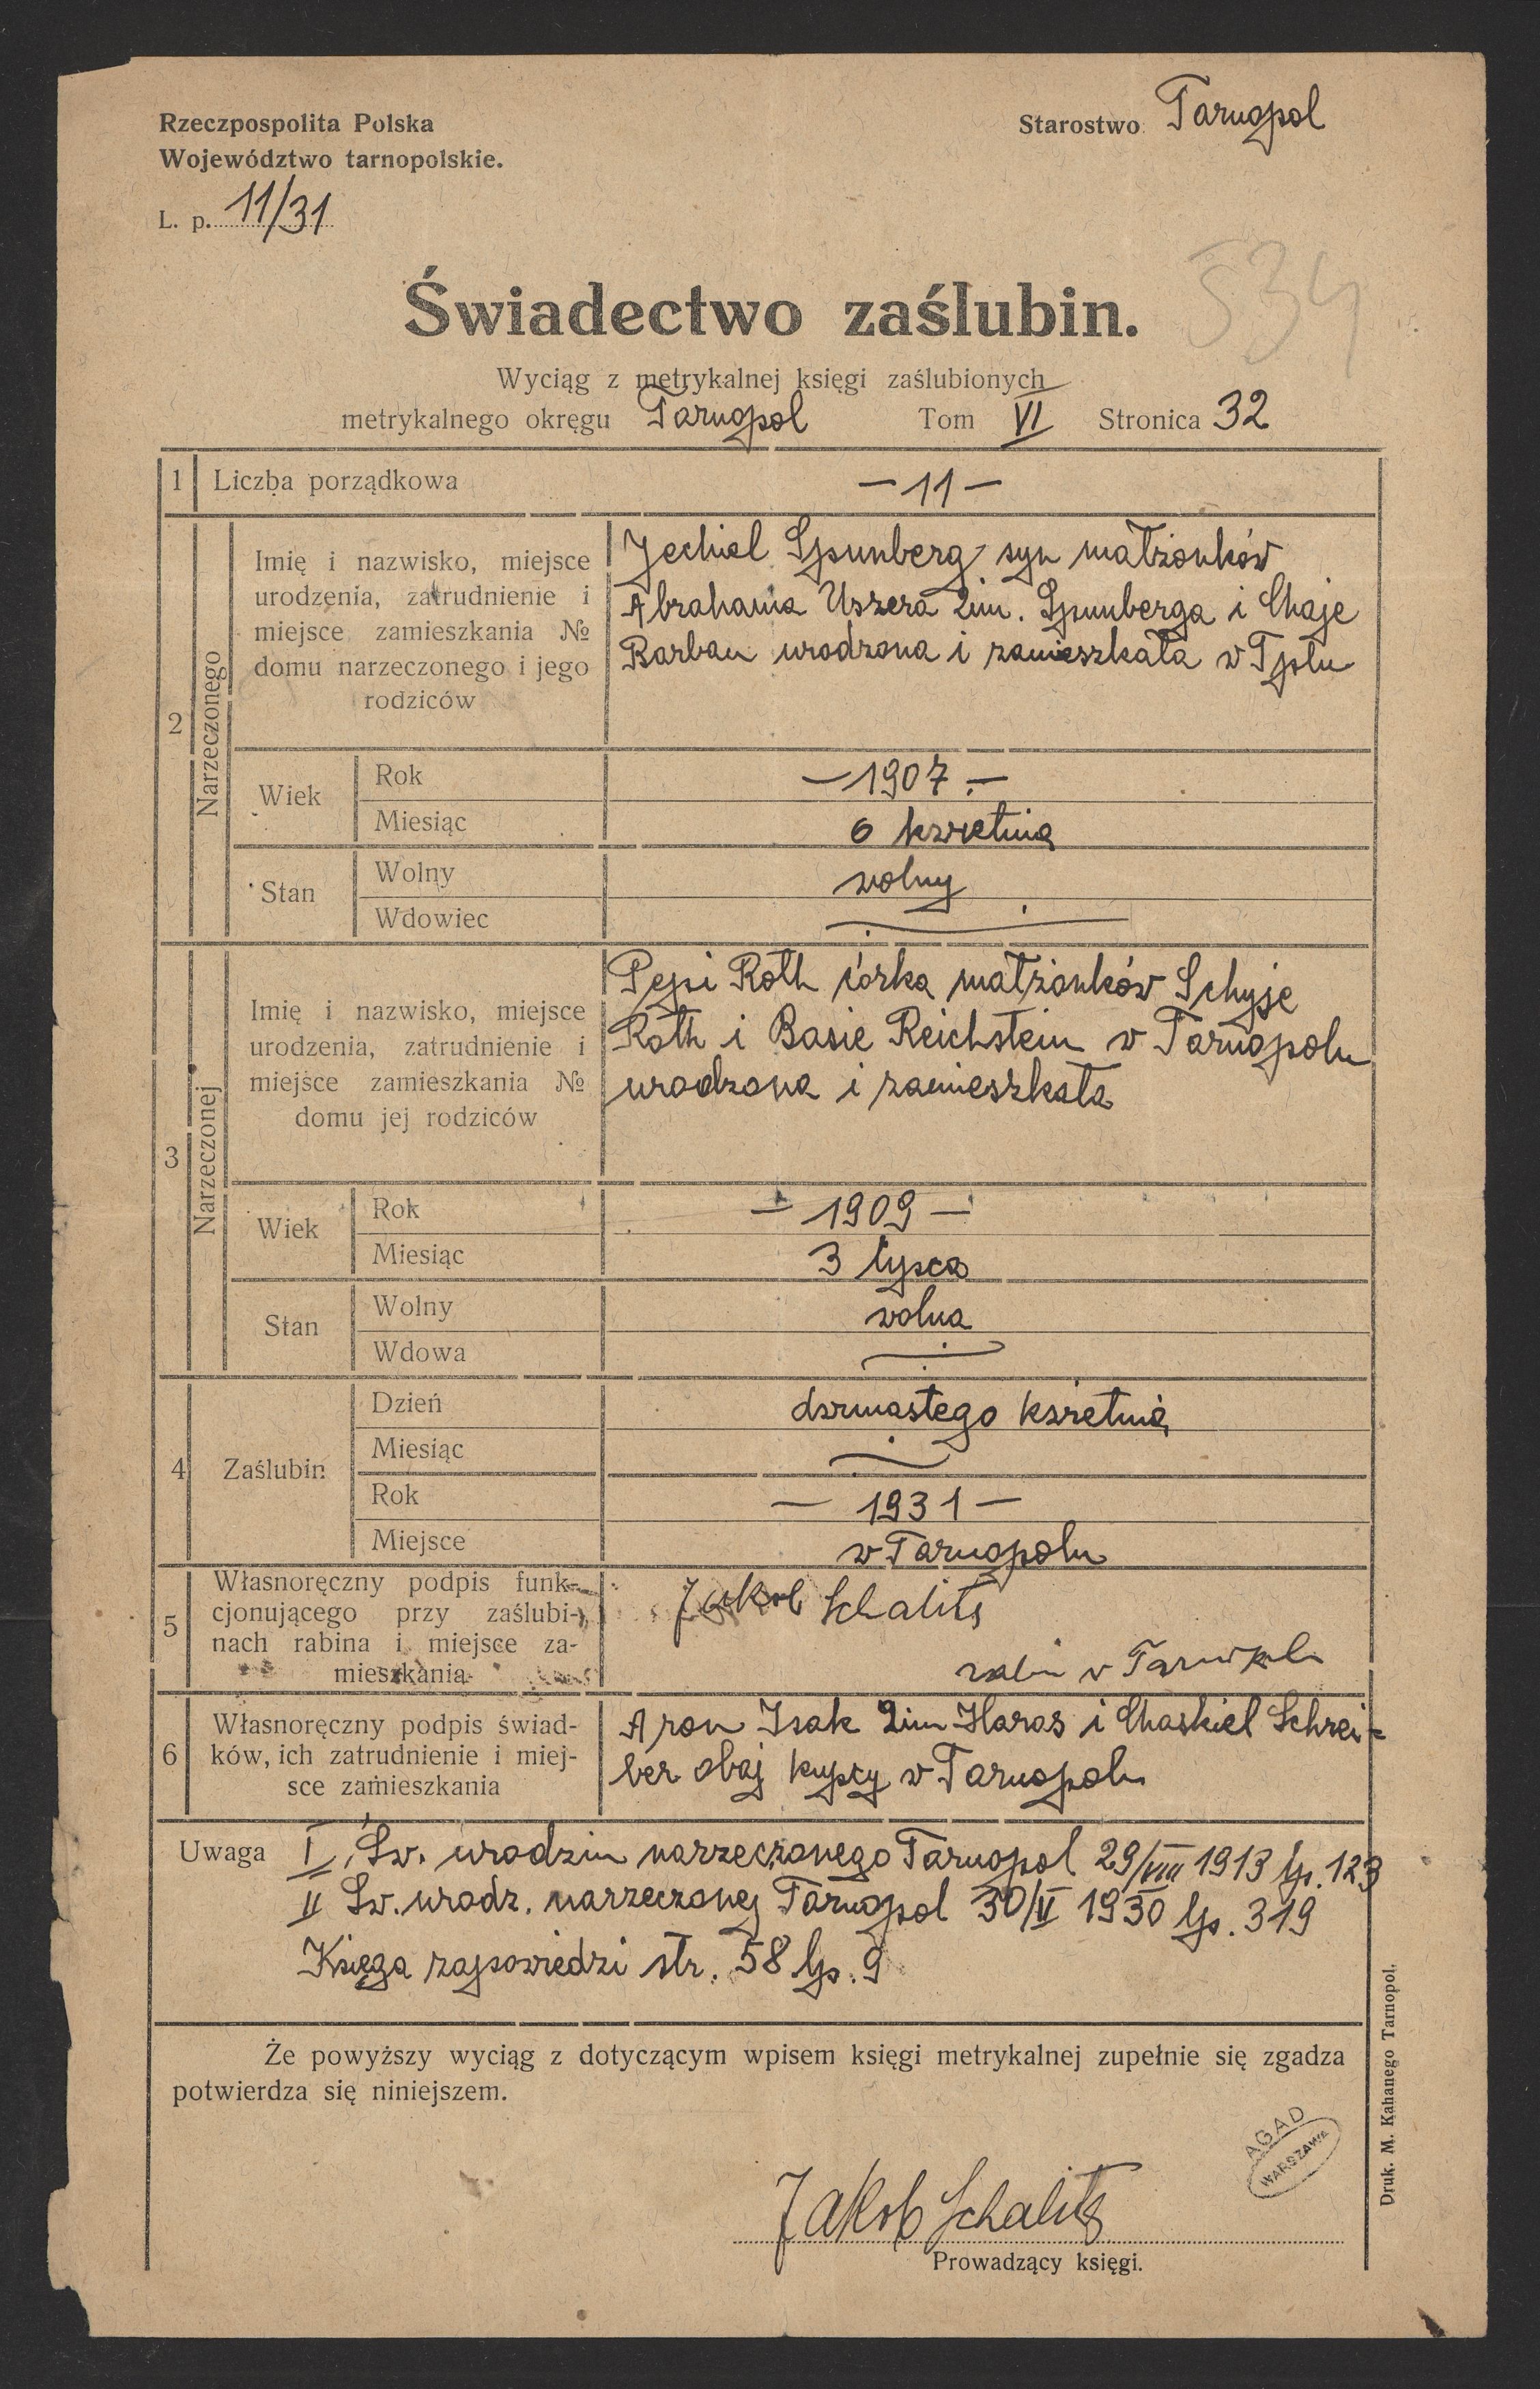 Rzeczpospolita Polska
Województwo tarnopolskie.
Starostwo Tarnopol
L. p. 11/31
534
Świadectwo zaślubin.
Wyciąg z metrykalnej księgi zaślubionych
metrykalnego okręgu Tarnopol Tom VI Stronica 32
1 Liczba porządkowa — 11 —
2 Narzeczonego
Imię i nazwisko, miejsce
urodzenia, zatrudnienie i
miejsce zamieszkania №
domu narzeczonego i jego
rodziców
Jechiel Spunberg syn małżonków
Abrahama Uszera 2im. Spunberga i Chaje
Barban urodzona i zamieszkała w Tplu
Wiek
Rok — 1907. —
Miesiąc 6 kwietnia
Stan
Wolny wolny
Wdowiec
3 Narzeczonej
Imię i nazwisko, miejsce
urodzenia, zatrudnienie i
miejsce zamieszkania №
domu jej rodziców
Pepi Roth córka małżonków Schyje
Roth i Basie Reichstein w Tarnopolu
urodzona i zamieszkała
Wiek
Rok — 1909 —
Miesiąc 3 lypca
Stan
Wolny wolna
Wdowa
4 Zaślubin
Dzień dwunastego kwietnia
Miesiąc
Rok — 1931 —
Miejsce w Tarnopolu
5
Własnoręczny podpis funk-
cjonującego przy zaślubi-
nach rabina i miejsce za-
mieszkania
Jakob Schalits
rabin w Tarnopolu
6
Własnoręczny podpis świad-
ków, ich zatrudnienie i miej-
sce zamieszkania
Aron Isak 2im Haras i Chaskiel Schrei-
ber obaj kupcy w Tarnopolu
Uwaga I, Św. urodzin narzeczonego Tarnopol 29/VIII 1913 lp. 123
II Św. urodz. narzeczonej Tarnopol 30/V 1930 lp. 319
Księga zapowiedzi str. 58 lp. 9
Że powyższy wyciąg z dotyczącym wpisem księgi metrykalnej zupełnie się zgadza
potwierdza się niniejszem.
AGAD
WARSZAWA
Jakob Schalits
Prowadzący księgi.
Druk. M. Kahanego Tarnopol.